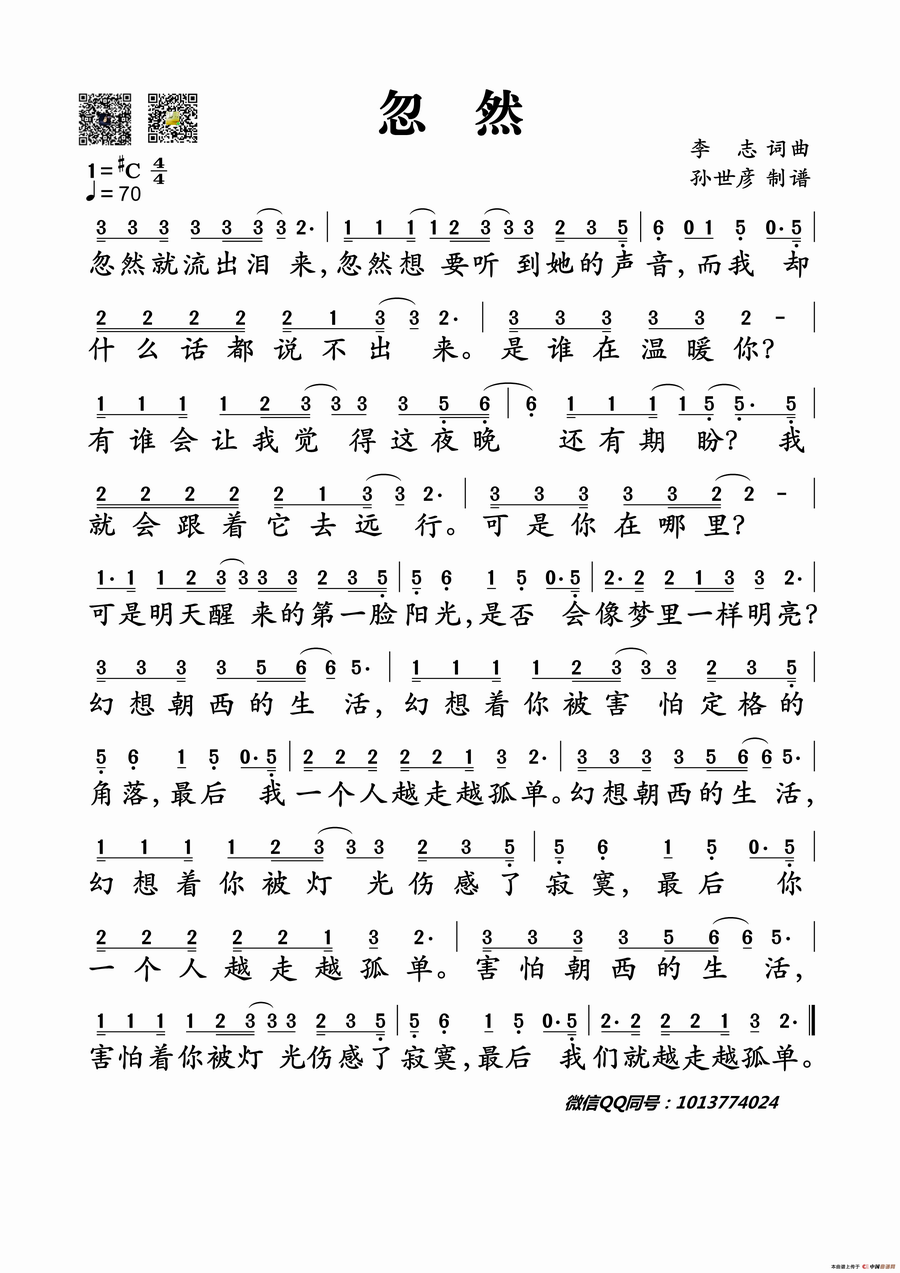 忽 然
李 志 词曲
孙世彦 制谱
1=♯C 4/4
♩=70
3 3 3 3 3 3 3 2· | 1 1 1 1 2 3 3 3 2 3 5 | 6 0 1 5 0· 5 |
忽然就流出泪 来,忽然想 要听 到她的声音,而我 却
2 2 2 2 2 1 3 3 2· | 3 3 3 3 3 2 - |
什么话都说不出 来。是谁在温暖你?
1 1 1 1 2 3 3 3 3 5 6 | 6 1 1 1 1 5 5· 5 |
有谁会让我觉 得这夜晚 还有期 盼? 我
2 2 2 2 2 1 3 3 2· | 3 3 3 3 3 2 2 - |
就会跟着它去远 行。可是你在哪里?
1· 1 1 2 3 3 3 3 2 3 5 | 5 6 1 5 0· 5 | 2· 2 2 1 3 3 2· |
可是明天醒 来的第一脸阳光,是否 会像梦里一样明亮?
3 3 3 3 5 6 6 5· | 1 1 1 1 2 3 3 3 2 3 5 |
幻想朝西的生 活,幻想着你被害 怕定格的
5 6 1 5 0· 5 | 2 2 2 2 2 1 3 2· | 3 3 3 3 5 6 6 5· |
角落,最后 我一个人越走越孤单。幻想朝西的生 活,
1 1 1 1 2 3 3 3 2 3 5 | 5 6 1 5 0· 5 |
幻想着你被灯 光伤感了寂寞,最后 你
2 2 2 2 2 1 3 2· | 3 3 3 3 5 6 6 5· |
一个人越走越孤单。害怕朝西的生 活,
1 1 1 1 2 3 3 3 2 3 5 | 5 6 1 5 0· 5 | 2· 2 2 2 1 3 2· ‖
害怕着你被灯 光伤感了寂寞,最后 我们就越走越孤单。
微信QQ同号：1013774024
本曲谱上传于 中国曲谱网